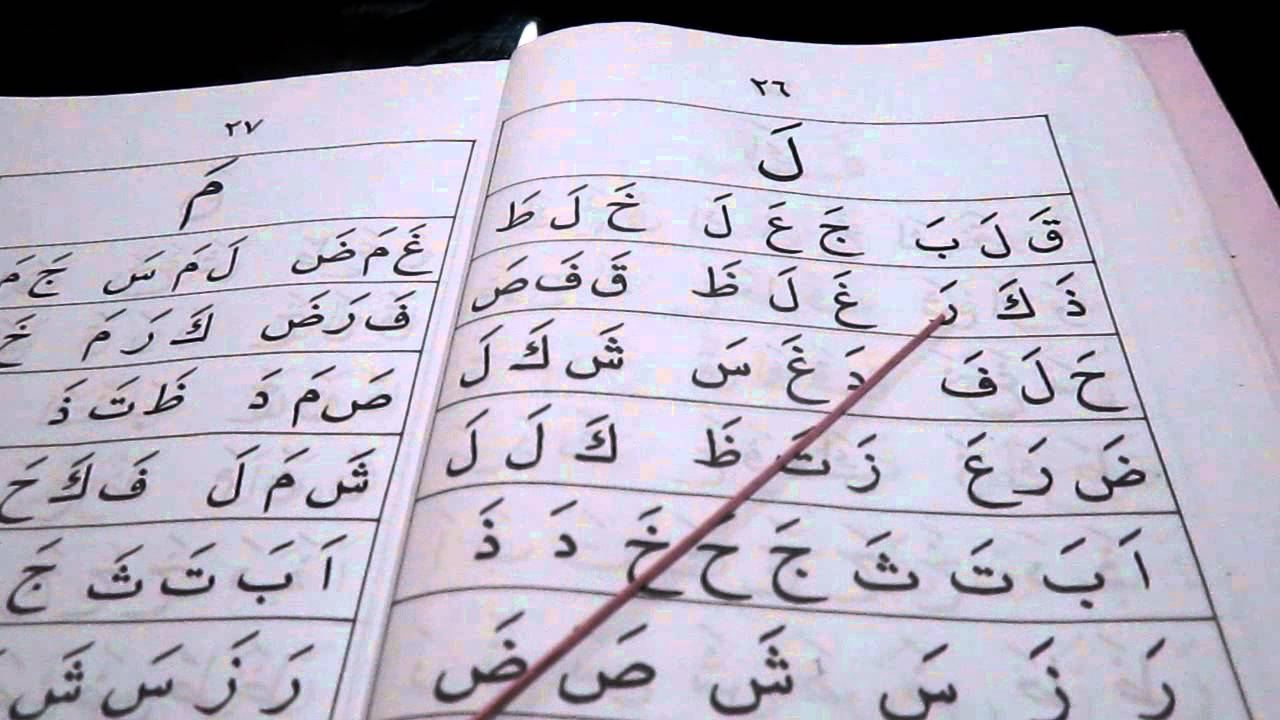 ٢٦
لَ
قَ لَ بَ جَ عَ لَ خَ لَ طَ
ذَ كَ رَ غَ لَ ظَ قَ فَ صَ
حَ لَ فَ دَ غَ سَ شَ كَ لَ
ضَ رَ عَ زَ تَ ظَ كَ لَ لَ
اَ بَ تَ ثَ جَ حَ خَ دَ ذَ
رَ زَ سَ شَ صَ ضَ
٢٧
مَ
غَ مَ ضَ لَ مَ سَ جَ مَ
فَ رَ ضَ كَ رَ مَ خَ
صَ مَ دَ ظَ تَ ذَ
شَ مَ لَ فَ كَ حَ
اَ بَ تَ ثَ جَ
رَ زَ سَ شَ